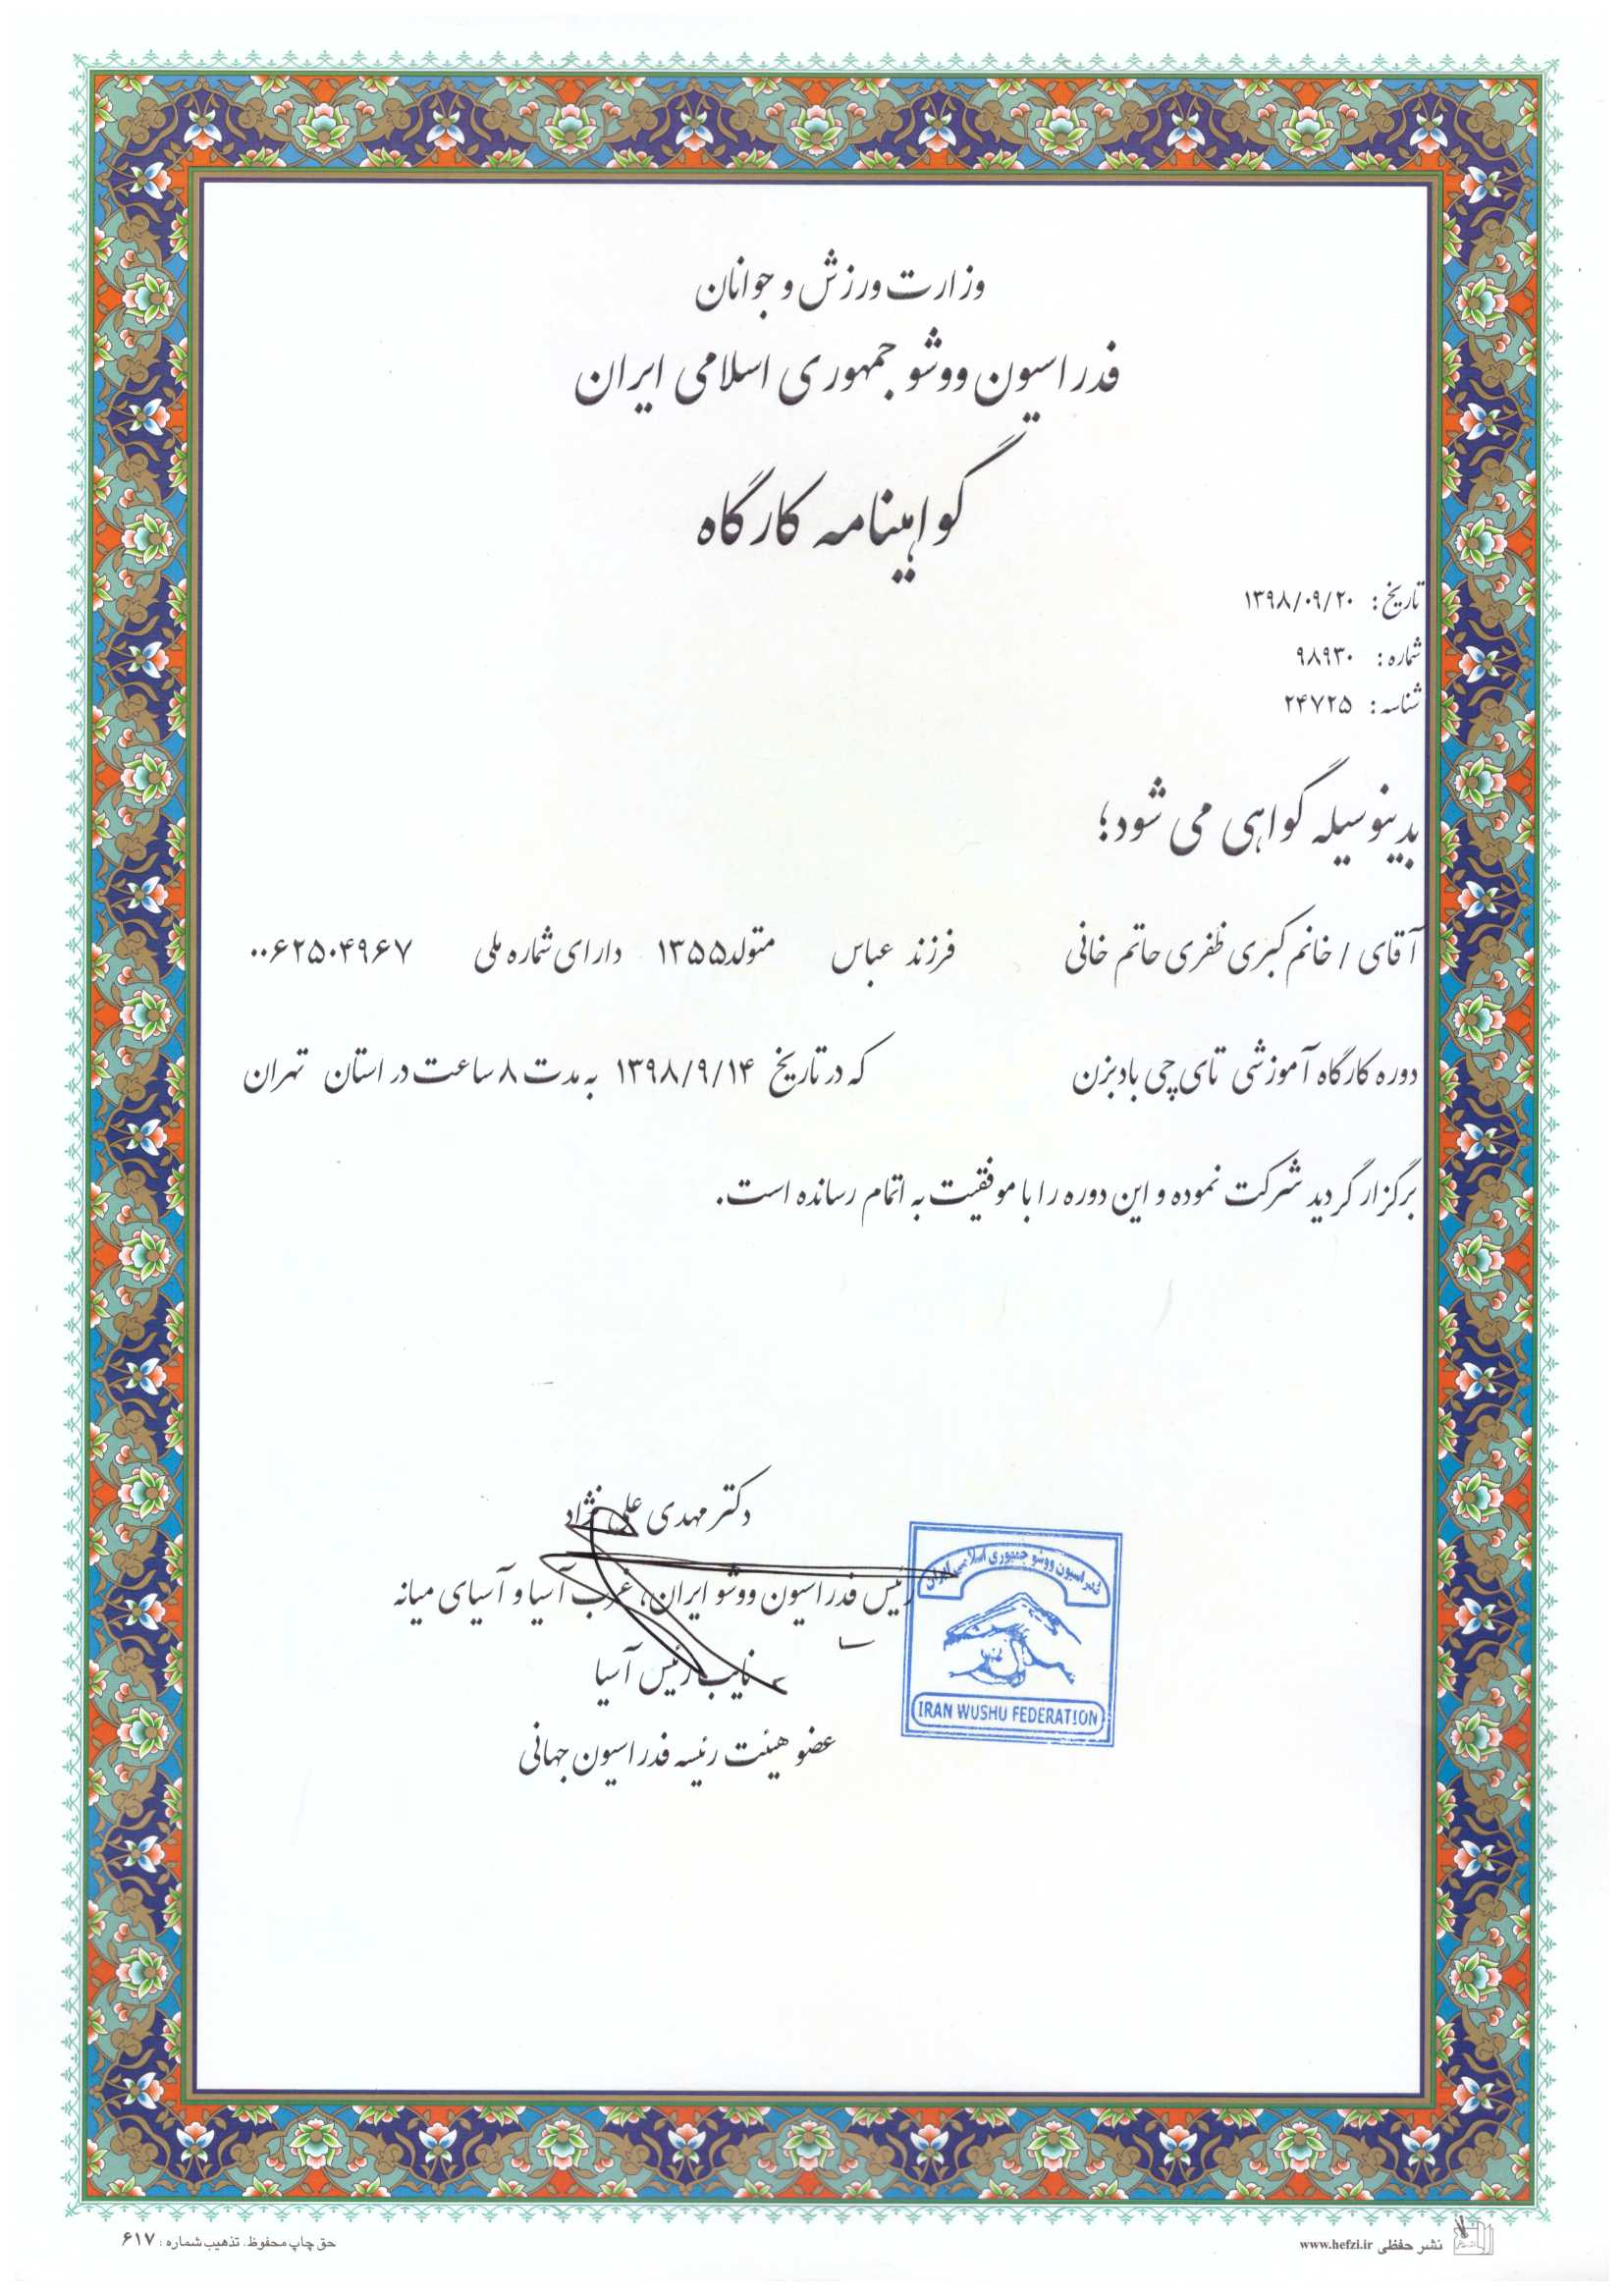 وزارت ورزش و جوانان
فدراسیون ووشو جمهوری اسلامی ایران
گواهینامه کارگاه
تاریخ: ۱۳۹۸/۰۹/۲۰
شماره: ۹۸۹۳۰
شناسه: ۲۴۷۲۵
بدینوسیله گواهی می شود؛
آقای / خانم کبری ظفری حاتم خانی فرزند عباس متولد ۱۳۵۵ دارای شماره ملی ۰۰۶۲۵۰۴۹۶۷
دوره کارگاه آموزشی تای چی بادبزن که در تاریخ ۱۳۹۸/۹/۱۴ به مدت ۸ ساعت در استان تهران
برگزار گردید شرکت نموده و این دوره را با موفقیت به اتمام رسانده است.
دکتر مهدی علی نژاد
رئیس فدراسیون ووشو ایران، غرب آسیا و آسیای میانه
نایب رئیس آسیا
عضو هیئت رئیسه فدراسیون جهانی
فدراسیون ووشو جمهوری اسلامی ایران
IRAN WUSHU FEDERATION
نشر حفظی www.hefzi.ir
حق چاپ محفوظ. تذهیب شماره: ۶۱۷